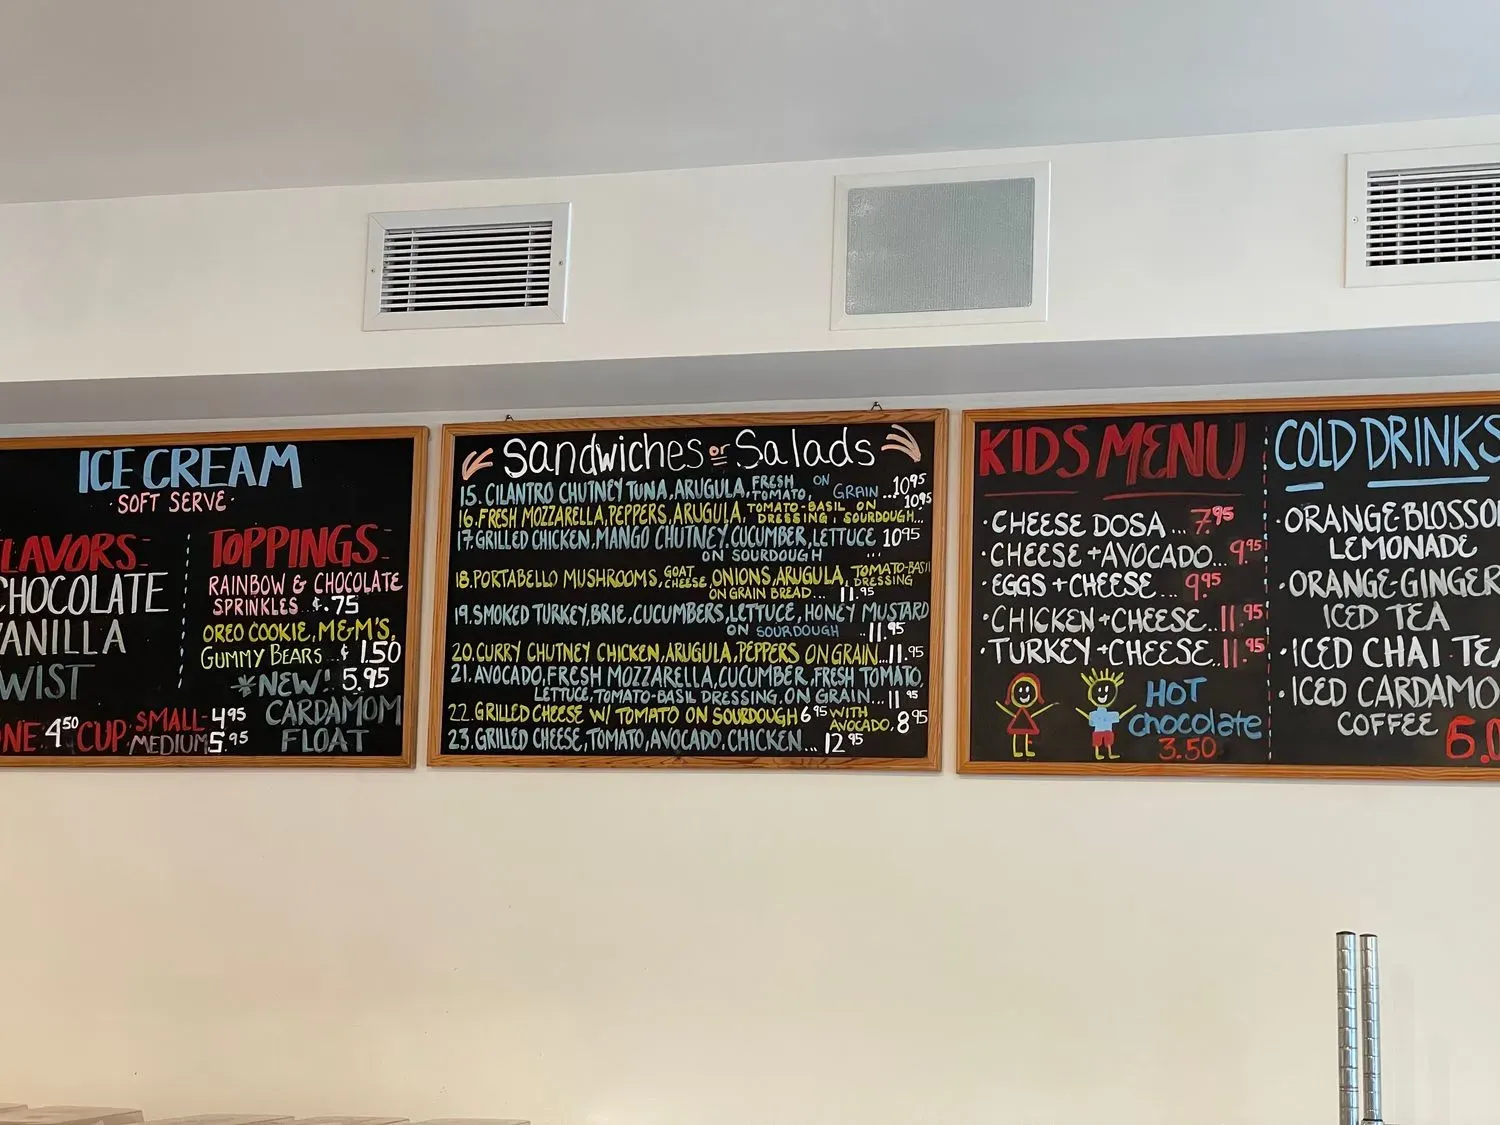 ICE CREAM
·SOFT SERVE·
FLAVORS-
CHOCOLATE
VANILLA
TWIST
TOPPINGS-
RAINBOW & CHOCOLATE
SPRINKLES ¢.75
OREO COOKIE, M&M'S,
GUMMY BEARS ¢ 1.50
*NEW! 5.95
CARDAMOM
FLOAT
CONE 4.50 CUP: SMALL- 4.95
MEDIUM 5.95
Sandwiches or Salads
15. CILANTRO CHUTNEY TUNA, ARUGULA, FRESH TOMATO, ON GRAIN...10.95
16. FRESH MOZZARELLA, PEPPERS, ARUGULA, TOMATO-BASIL DRESSING, ON SOURDOUGH... 10.95
17. GRILLED CHICKEN, MANGO CHUTNEY, CUCUMBER, LETTUCE 10.95
ON SOURDOUGH ...
18. PORTABELLO MUSHROOMS, GOAT CHEESE, ONIONS, ARUGULA, TOMATO-BASIL DRESSING
ON GRAIN BREAD... 11.95
19. SMOKED TURKEY, BRIE, CUCUMBERS, LETTUCE, HONEY MUSTARD
ON SOURDOUGH ..11.95
20. CURRY CHUTNEY CHICKEN, ARUGULA, PEPPERS ON GRAIN...11.95
21. AVOCADO, FRESH MOZZARELLA, CUCUMBER, FRESH TOMATO,
LETTUCE, TOMATO-BASIL DRESSING, ON GRAIN...11.95
22. GRILLED CHEESE W/ TOMATO ON SOURDOUGH 6.95 WITH AVOCADO. 8.95
23. GRILLED CHEESE, TOMATO, AVOCADO, CHICKEN... 12.95
KIDS MENU
·CHEESE DOSA ... 7.95
·CHEESE + AVOCADO... 9.95
·EGGS + CHEESE... 9.95
·CHICKEN + CHEESE.. 11.95
·TURKEY + CHEESE.. 11.95
HOT
Chocolate
3.50
COLD DRINKS
·ORANGE-BLOSSOM
LEMONADE
·ORANGE-GINGER
ICED TEA
·ICED CHAI TEA
·ICED CARDAMOM
COFFEE